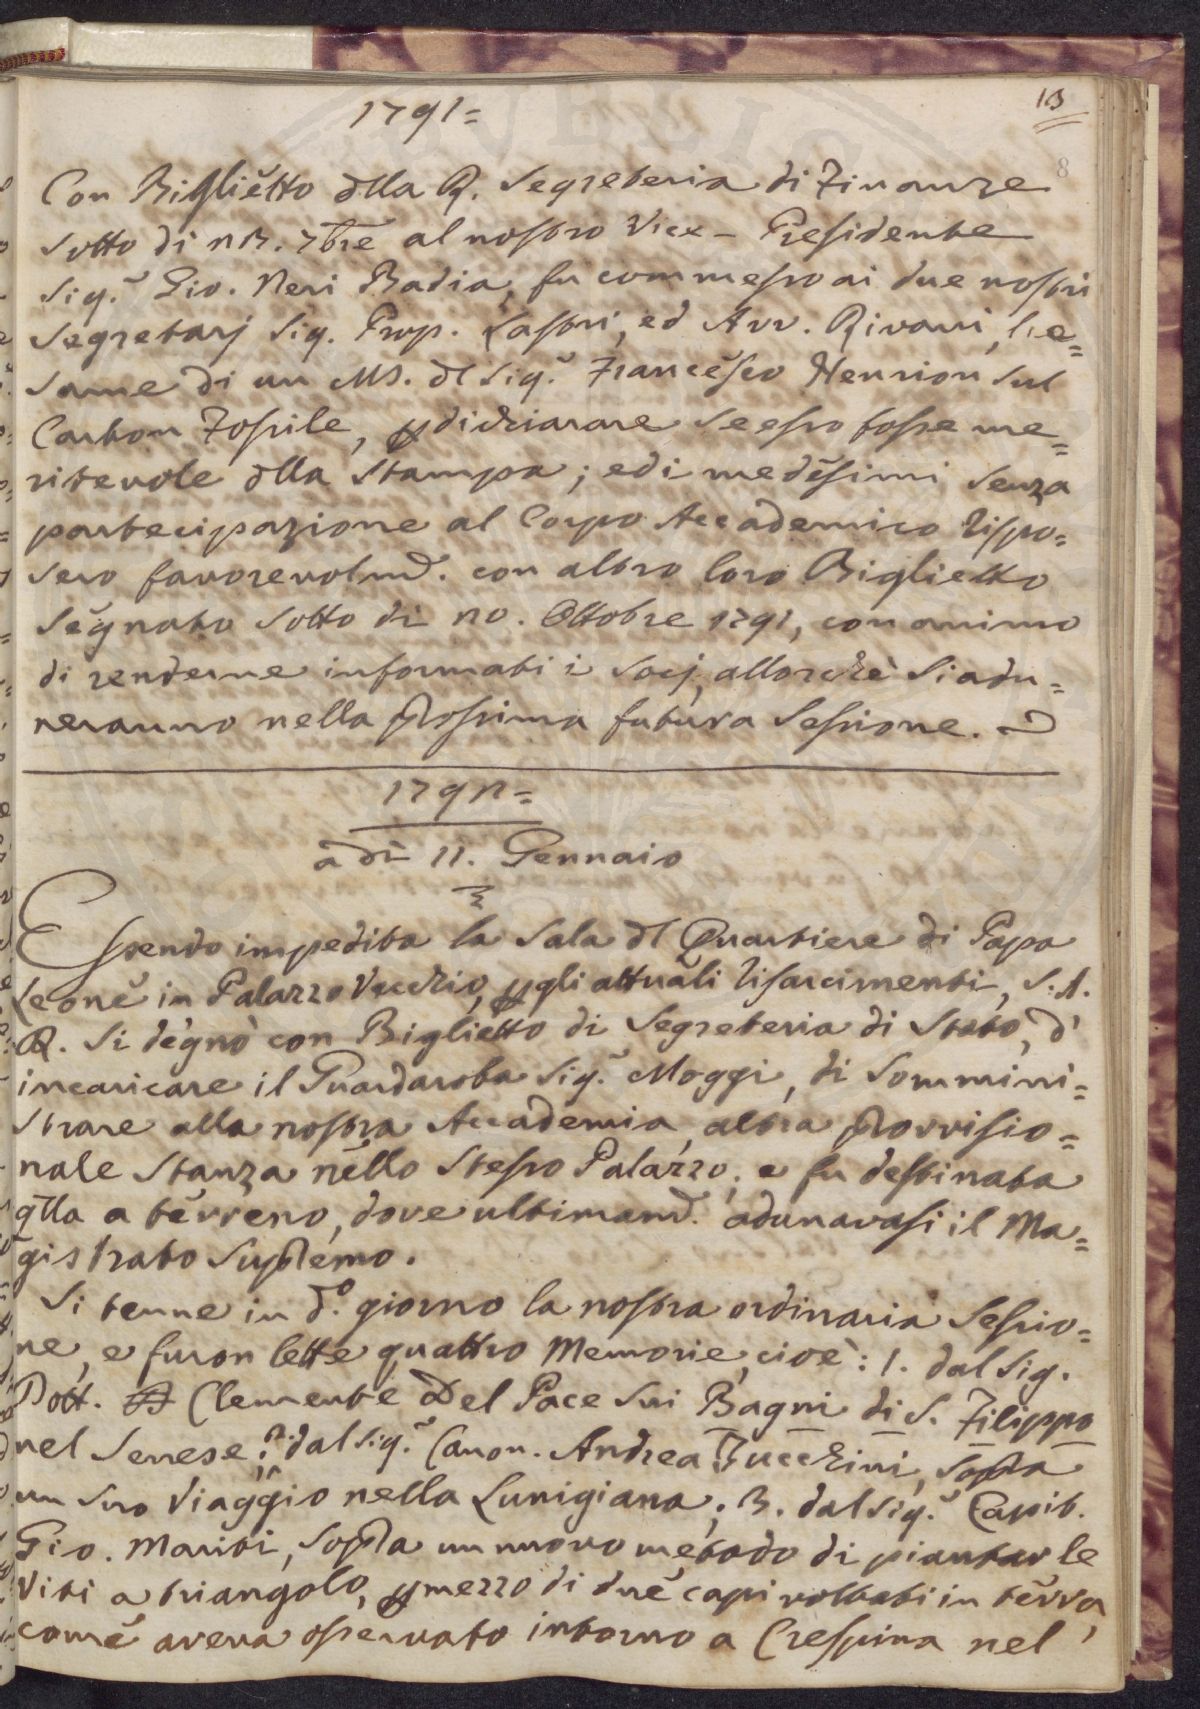 1791=
13
8
Con Biglietto dlla R. Segreteria di Finanze
sotto di 23. 7bre al nostro Vice-Presidente
Sig.r Gio. Neri Badia, fu commesso ai due nostri
Segretarj Sig. Prop. Lastri, ed Avv. Rivani, l'e=
same di un MS. dl Sig.r Francesco Henrion sul
Carbon Fossile, p dichiarare se esso fosse me=
ritevole dlla Stampa; ed i medesimi senza
partecipazione al Corpo Accademico rispo=
sero favorevolmd. con altro loro Biglietto
segnato sotto di 20. Ottobre 1791, con animo
di renderne informati i Socj, allorchè si adu=
neranno nella prossima futura Sessione.
1792=
a dì 11. Gennaio
Essendo impedita la Sala dl Quartiere di Papa
Leone in Palazzo Vecchio, p gli attuali risarcimenti, S. A.
R. si degnò con Biglietto di Segreteria di Stato, d'
incaricare il Guardaroba Sig.r Moggi, di sommini=
strare alla nostra Accademia altra provvisio=
nale Stanza nello stesso Palazzo; e fu destinata
qlla a terreno, dove ultimamd. adunavasi il Ma=
gistrato Supremo.
Si tenne in d.o giorno la nostra ordinaria Sessio=
ne, e furon lette quattro Memorie, cioè: 1. dal Sig.
Dott. Clemente Del Pace sui Bagni di S. Filippo
nel Senese; 2. dal Sig.r Canon. Andrea Zucchini, sopra
un suo Viaggio nella Lunigiana; 3. dal Sig.r Capit.
Gio. Mariti, sopra un nuovo metodo di piantar le
Viti a triangolo, p mezzo di due capi voltati in terra,
come aveva osservato intorno a Crespina nel